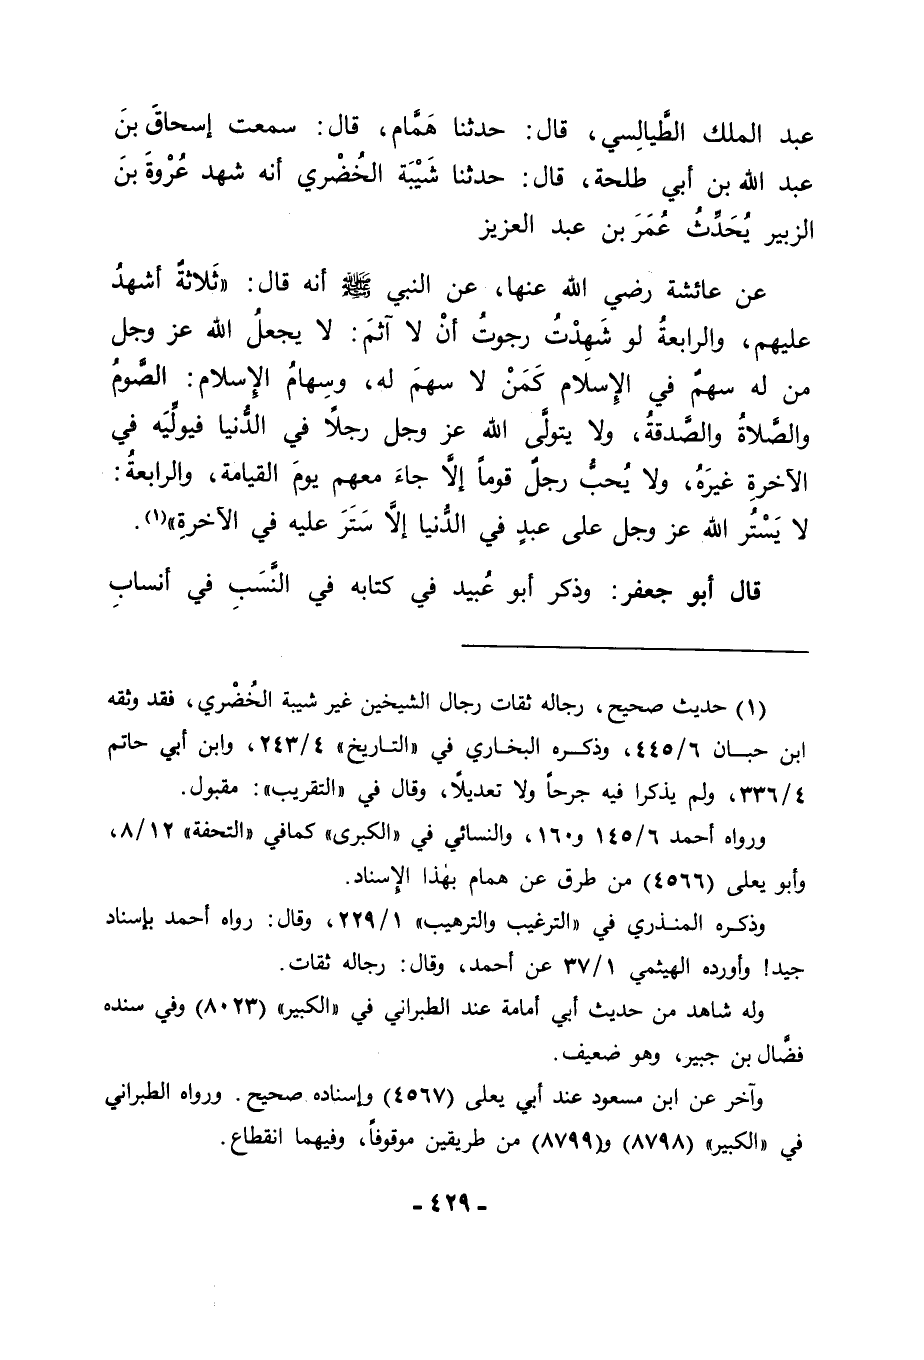 عبد الملك الطَّيالِسي، قال: حدثنا هَمَّام، قال: سمعت إسحاقَ بنَ
عبد الله بن أبي طلحة، قال: حدثنا شَيْبَة الخُضْري أنه شهد عُرْوةَ بنَ
الزبير يُحَدِّثُ عُمَرَ بن عبد العزيز
عن عائشة رضي الله عنها، عن النبي ﷺ أنه قال: «ثَلاثةٌ أشهدُ
عليهم، والرابعةُ لو شَهِدْتُ رجوتُ أنْ لا آثمَ: لا يجعلُ الله عز وجل
من له سهمٌ في الإِسلام كَمَنْ لا سهمَ له، وسِهامُ الإِسلام: الصَّومُ
والصَّلاةُ والصَّدقةُ، ولا يتولَّى الله عز وجل رجلاً في الدُّنيا فيولِّيَه في
الآخرةِ غيرَهُ، ولا يُحبُّ رجلٌ قوماً إلَّا جاءَ معهم يومَ القيامة، والرابعةُ:
لا يَسْتُر الله عز وجل على عبدٍ في الدُّنيا إلَّا سَتَرَ عليه في الآخرةِ»(١).
قال أبو جعفر: وذكر أبو عُبيد في كتابه في النَّسَبِ في أنسابِ
(١) حديث صحيح، رجاله ثقات رجال الشيخين غير شيبة الخُضْري، فقد وثقه
ابن حبـان ٤٤٥/٦، وذكـره البخـاري في «التـاريخ» ٢٤٣/٤، وابن أبي حاتم
٣٣٦/٤، ولم يذكرا فيه جرحاً ولا تعديلاً، وقال في «التقريب»: مقبول.
ورواه أحمد ١٤٥/٦ و١٦٠، والنسائي في «الكبرى» كمافي «التحفة» ٨/١٢،
وأبو يعلى (٤٥٦٦) من طرق عن همام بهٰذا الإِسناد.
وذكـره المنـذري في «الترغيب والترهيب» ٢٢٩/١، وقال: رواه أحمد بإسناد
جيد! وأورده الهيثمي ٣٧/١ عن أحمد، وقال: رجاله ثقات.
وله شاهد من حديث أبي أمامة عند الطبراني في «الكبير» (٨٠٢٣) وفي سنده
فضَّال بن جبير، وهو ضعيف.
وآخر عن ابن مسعود عند أبي يعلى (٤٥٦٧) وإسناده صحيح. ورواه الطبراني
في «الكبير» (٨٧٩٨) و(٨٧٩٩) من طريقين موقوفاً، وفيهما انقطاع.
- ٤٢٩ -